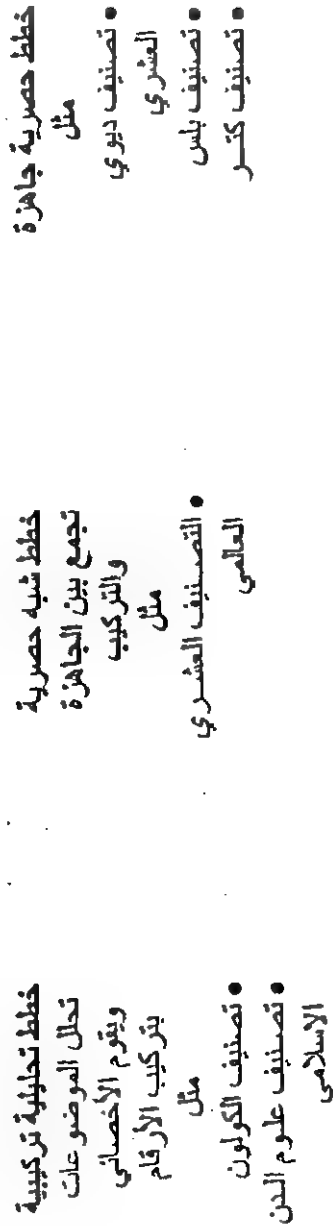 خطط حصرية جاهزة
مثل
• تصنيف ديوي
العشري
• تصنيف بلس
• تصنيف كتر
خطط شبه حصرية
تجمع بين الجاهزة
والتركيب
مثل
• التصنيف العشري
العالمي
خطط تحليلية تركيبية
تحلل الموضوعات
ويقوم الأخصائي
بتركيب الأرقام
مثل
• تصنيف الكولون
• تصنيف علوم الدن
الاسلامي